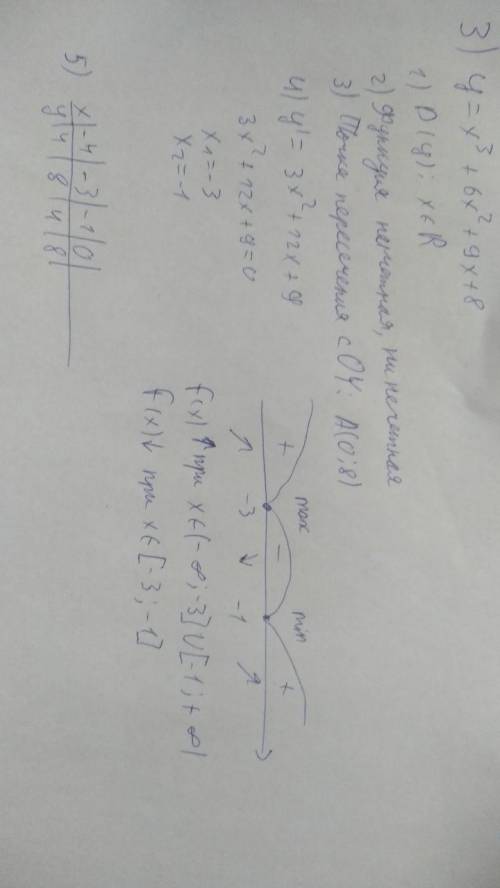 3) y = x³ + 6x² + 9x + 8
1) D(y): x ∈ R
2) Функция нечетная, ни нечетная
3) Точка пересечения с OY: A(0; 8)
4) y' = 3x² + 12x + 9
3x² + 12x + 9 = 0
x₁ = -3
x₂ = -1
max min
+ - +
↗ -3 ↘ -1 ↗
f(x) ↑ при x ∈ (-∞; -3] U [-1; +∞)
f(x) ↓ при x ∈ [-3; -1]
5) x | -4 | -3 | -1 | 0 |
y | 4 | 8 | 4 | 8 |